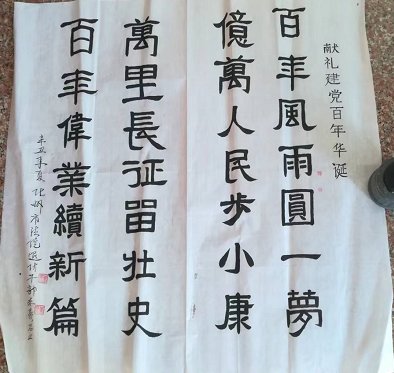 献礼建党百年华诞
百年風雨圓一夢
億萬人民步小康
萬里長征留壮史
百年偉業續新篇